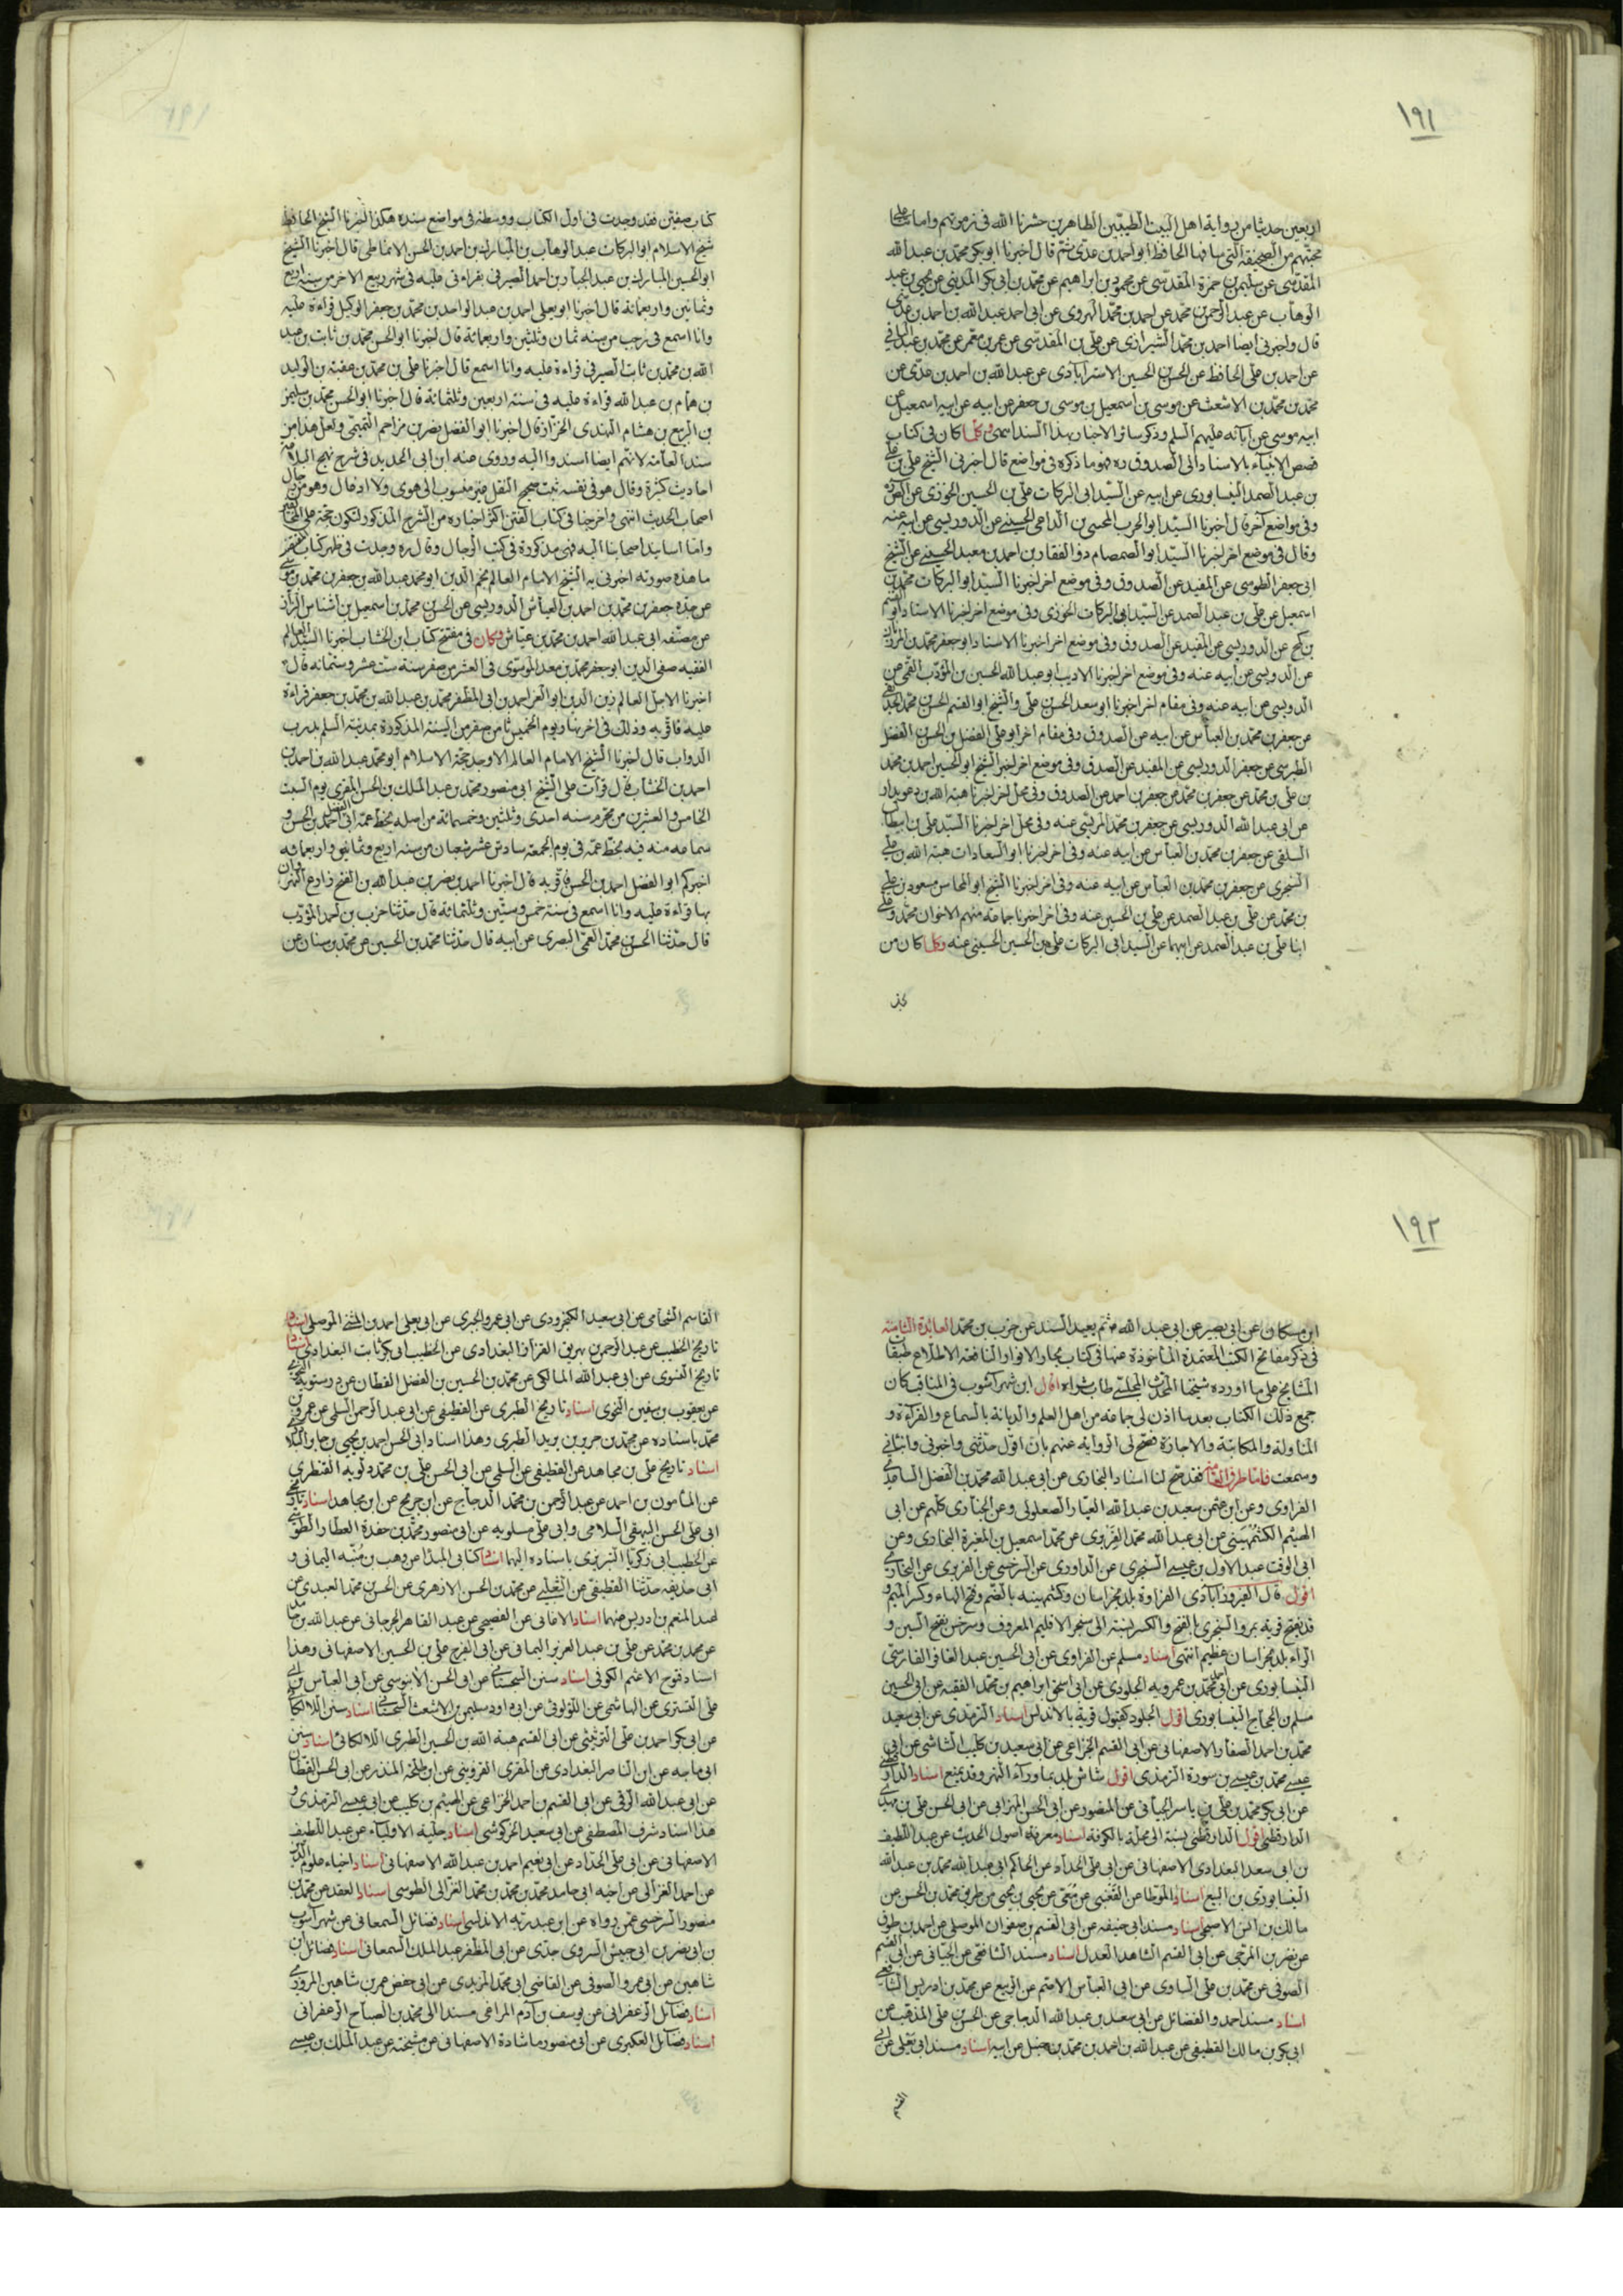 ١٩١
اربعين حديثا من رواية اهل البيت الطيبين الطاهرين حشرنا الله في زمرتهم واماتنا على
محبتهم من الصحيفة التي ساقها الحافظ ابو احمد بن عدي ثم قال اخبرنا ابو بكر محمد بن عبد الله
المقدسي عن سليمن بن حمزة المقدسي عن محمود بن ابراهيم عن محمد بن ابي بكر المديني عن يحيى بن عبد
الوهاب عن عبد الرحمن بن محمد عن احمد بن محمد الهروي عن ابي احمد عبد الله بن احمد بن عدي
قال واخبرني ايضا احمد بن محمد الشيرازي عن علي بن المقدسي عن عمر بن معمر عن محمد بن عبد الباقي
عن احمد بن علي الحافظ عن الحسن بن الحسين الاسترآبادي عن عبد الله بن احمد بن عدي عن
محمد بن محمد بن الاشعث عن موسى بن اسمعيل بن موسى بن جعفر عن ابيه عن ابيه اسمعيل عن
ابيه موسى عن آبائه عليهم السلم وذكر سائر الاخبار بهذا السند اسمى وكلما كان في كتاب
قصص الانبياء بالاسناد الى الصدوق ره فهو ما ذكره في مواضع قال اخبرني الشيخ علي بن علي
بن عبد الصمد النيسابوري عن ابيه عن السيد ابي البركات علي بن الحسين الخوزي عن الصدوق
وفي مواضع آخر قال اخبرنا السيد ابو الحرب المجتبى بن الداعي الحسيني عن الدوريستي عن ابيه عنه
وقال في موضع اخر اخبرنا السيد ابو الصمصام ذو الفقار بن احمد بن معبد الحسيني عن الشيخ
ابي جعفر الطوسي عن المفيد عن الصدوق وفي موضع اخر اخبرنا السيد ابو البركات محمد بن
اسمعيل عن علي بن عبد الصمد عن السيد ابي البركات الخوزي وفي موضع اخر اخبرنا الاستاد ابو القسم
بن كمح عن الدوريستي عن المفيد عن الصدوق وفي موضع اخر اخبرنا الاستاد ابو جعفر محمد بن المرزبان
عن الدوريستي عن ابيه عنه وفي موضع اخر اخبرنا الاديب ابو عبد الله الحسين بن المؤدب القمي عن
الدوريستي عن ابيه عنه وفي مقام اخر اخبرنا ابو سعد الحسن بن علي والشيخ ابو القسم الحسن بن محمد الحديقي
عن جعفر بن محمد بن العباس عن ابيه عن الصدوق وفي مقام اخر ابو علي الفضل بن الحسن بن الفضل
الطبرسي عن جعفر الدوريستي عن المفيد عن الصدوق وفي موضع اخر اخبر الشيخ ابو الحسين احمد بن محمد
بن علي بن محمد عن جعفر بن محمد عن جعفر بن احمد عن الصدوق وفي محل اخر اخبرنا هبة الله بن دعويدار
عن ابي عبد الله الدوريستي عن جعفر بن محمد المريسي عنه وفي محل اخر اخبرنا السيد علي بن ابي طالب
السلقي عن جعفر بن محمد بن العباس عن ابيه عنه وفي اخر اخبرنا ابو السعادات هبة الله بن علي
الشجري عن جعفر بن محمد بن العباس عن ابيه عنه وفي اخر اخبرنا الشيخ ابو المحاسن مسعود بن علي
بن محمد عن علي بن عبد الصمد عن علي بن الحسين عنه وفي اخر اخبرنا جماعة منهم الاخوان محمد وعلي
ابنا علي بن عبد الصمد عن ابيهما عن السيد ابي البركات علي بن الحسين الحسيني عنه وكلما كان من
كتاب صفين فقد وجدت في اول الكتاب ووسطه في مواضع سنده هكذا اخبرنا الشيخ الحافظ
شيخ الاسلام ابو البركات عبد الوهاب بن المبارك بن احمد بن الحسن الانماطي قال اخبرنا الشيخ
ابو الحسين المبارك بن عبد الجبار بن احمد الصيرفي بقراءتي عليه في شهر ربيع الاخر من سنة اربع
وثمانين واربعمائة قال اخبرنا ابو يعلى احمد بن عبد الواحد بن محمد بن جعفر الوكيل قراءة عليه
وانا اسمع في رجب من سنة ثمان وثلثين واربعمائة قال اخبرنا ابو الحسن محمد بن ثابت بن عبد
الله بن محمد بن ثابت الصيرفي قراءة عليه وانا اسمع قال اخبرنا علي بن محمد بن عقبة بن الوليد
بن همام بن عبد الله قراءة عليه في سنة اربعين وثلثمائة قال اخبرنا ابو الحسن محمد بن سليمن
بن الربيع بن هشام النهدي الخزاز قال اخبرنا ابو الفضل نصر بن مزاحم التميمي ولعل هذا من
سند العامة لانهم ايضا اسندوا اليه وروى عنه ابن ابي الحديد في شرح نهج البلاغة
احاديث كثيرة وقال هو في نفسه ثبت صحيح النقل غير منسوب الى هوى ولا ادغال وهو من رجال
اصحاب الحديث انتهى واخرجنا في كتاب الفتن اكثر اخباره من الشرح المذكور لتكون حجة على المخالفين
واما اسانيد اصحابنا اليه فهي مذكورة في كتب الرجال وقال ره وجدت في ظهر كتاب المقتضب
ما هذه صورته اخبرني به الشيخ الامام العالم نجم الدين ابو محمد عبد الله بن جعفر بن محمد بن موسى
عن جده جعفر بن محمد بن احمد بن العباس الدوريستي عن الحسن بن محمد بن اسمعيل بن اشناس البزاز
عن مصنفه ابي عبد الله احمد بن محمد بن عياش وكان في مفتتح كتاب ابن الخشاب اخبرنا السيد العالم
الفقيه صفي الدين ابو جعفر محمد بن معد الموسوي في العشر من صفر سنة ست عشر وستمائة قال
اخبرنا الاجل العالم زين الدين ابو العز احمد بن ابي المظفر محمد بن عبد الله بن محمد بن جعفر قراءة
عليه فاقر به وذلك في اخر نهار يوم الخميس ثامن صفر من السنة المذكورة بمدينة السلم بدرب
الدواب قال اخبرنا الشيخ الامام العالم الاوحد حجة الاسلام ابو محمد عبد الله بن احمد بن
احمد بن الخشاب قال قرأت على الشيخ ابي منصور محمد بن عبد الملك بن الحسن المقري يوم السبت
الخامس والعشرين من محرم سنة احدى وثلثين وخمسمائة من اصله بخط عمه ابي الفضل احمد بن الحسن و
سماعه منه فيه بخط عمه في يوم الجمعة سادس عشر شعبان من سنة اربع وثمانين واربعمائة
اخبركم ابو الفضل احمد بن الحسن فاقر به قال اخبرنا احمد بن نصر بن عبد الله بن الفتح ذارع النهروان
بها قراءة عليه وانا اسمع في سنة خمس وستين وثلثمائة قال حدثنا حرب بن احمد المؤدب
قال حدثنا الحسن بن محمد العمي البصري عن ابيه قال حدثنا محمد بن الحسين عن محمد بن سنان عن
١٩٢
ابن مسكان عن ابي بصير عن ابي عبد الله ع ثم يعيد السند عن حرب بن محمد العائدة الثامنة
في ذكر مفاتح الكتب المعتمدة المأخوذة عنها في كتاب بحار الانوار النافعة الاطلاع طبقا
المشايخ على ما اورده شيخنا المحدث المجلسي طاب ثراه اقول ابن شهرآشوب في المناقب كان
جمع ذلك الكتاب بعد ما اذن لي جماعة من اهل العلم والديانة بالسماع والقراءة و
المناولة والمكاتبة والاجازة فصح لي الرواية عنهم بان اقول حدثني واخبرني وانبأني
وسمعت فاما طرق العامة فقد صح لنا اسناد البخاري عن ابي عبد الله محمد بن الفضل الساعدي
الفراوي وعن ابن عثمن سعيد بن عبد الله العيار الصعلوكي وعن الجنازي كلهم عن ابي
الهيثم الكشمهيني عن ابي عبد الله محمد الفربري عن محمد اسمعيل بن المغيرة البخاري وعن
ابي الوقت عبد الاول بن عيسى السنجري عن الداوري عن السرخسي عن الفربري عن البخاري
اقول قال الفيروزآبادي الفراوة بلد بخراسان وكشمهينه بالضم وفتح الهاء وكسر الميم و
قد يفتح قرية بمرو والسنجري بالفتح والكسر نسبة الى سنجر الاقليم المعروف وسرخس بفتح السين و
الراء بلد بخراسان عظيم انتهى اسناد مسلم عن الفراوي عن ابي الحسين عبد الغافر الفارسي
النيسابوري عن ابي احمد محمد بن عمرويه الجلودي عن ابي اسحق ابراهيم بن محمد الفقيه عن ابي الحسين
مسلم بن الحجاج النيسابوري اقول الجلود كقبول قرية بالاندلس اسناد الترمذي عن ابي سعيد
محمد بن احمد الصفار الاصفهاني عن ابي القسم الخزاعي عن ابي سعيد بن كليب الشاشي عن ابي
عيسى محمد بن عيسى بن سورة الترمذي اقول شاش بلد بما وراء النهر وقد يمنع اسناد الدارقطني
عن ابي بكر محمد بن علي بن ياسر الجياني عن المنصور عن ابي الحسن المهرابي عن ابي الحسن علي بن مهدي
الدارقطني اقول الدارقطني نسبة الى محلة بالكوفة اسناد معرفة اصول الحديث عن عبد اللطيف
بن ابي سعد البغدادي الاصفهاني عن ابي علي الحداد عن الحاكم ابي عبد الله محمد بن عبد الله
النيسابوري بن البيع اسناد الموطا عن القعنبي عن معن عن يحيى بن يحيى من طريق محمد بن الحسن عن
مالك بن انس الاصبحي اسناد مسند ابي حنيفة عن ابي القسم بن صفوان الموصلي عن احمد بن طوق
عن نصر بن المرجي عن ابي القسم الشاهد العدل اسناد مسند الشافعي عن الجياني عن ابي القسم
الصوفي عن محمد بن علي الساوي عن ابي العباس الاصم عن الربيع عن محمد بن ادريس الشافعي
اسناد مسند احمد والفضائل عن ابي سعد بن عبد الله الدجاجي عن الحسن بن علي المذهب عن
ابي بكر بن مالك القطيفي عن عبد الله بن احمد بن محمد بن حنبل عن ابيه اسناد مسند ابي يعلى عن ابي
القاسم الشحامي عن ابي سعيد الكنجرودي عن ابي عمرو الجبري عن ابي يعلى احمد بن المثنى الموصلي اسناد
تاريخ الخطيب عن عبد الرحمن بن بهريق القزاز البغدادي عن الخطيب ابي بكر ثابت البغدادي اسناد
تاريخ الفسوي عن ابي عبد الله المالكي عن محمد بن الحسين بن الفضل القطان عن درستويه النحوي
عن يعقوب بن سفين النحوي اسناد تاريخ الطبري عن القطيفي عن ابي عبد الرحمن السلمي عن عمرو بن
محمد باسناده عن محمد بن جرير بن بريد الطبري وهذا اسناد ابي الحسن احمد بن يحيى بن جابر البلاذري
اسناد تاريخ علي بن مجاهد عن القطيفي عن السلمي عن ابي الحسن علي بن محمد دلويه القنطري
عن المأمون بن احمد عن عبد الرحمن بن محمد الدجاج عن ابن جريج عن ابن مجاهد اسناد تاريخي
ابي علي الحسن البيهقي السلامي وابي علي مسلويه عن ابي منصور محمد بن حفدة العطار الطوسي
عن الخطيب ابي زكريا التبريزي باسناده اليهما اسناد كتابي المبدأ عن وهب بن منبه اليماني و
ابي حذيفة حدثنا القطيفي عن الثعلبي عن محمد بن الحسن الازهري عن الحسن بن محمد العبدي عن
عبد المنعم بن ادريس عنهما اسناد الاغاني عن الفصيحي عن عبد القاهر الجرجاني عن عبد الله بن حامد
عن محمد بن محمد عن علي بن عبد العزيز اليماني عن ابي الفرج علي بن الحسين الاصفهاني وهذا
اسناد فتوح الاعثم الكوفي اسناد سنن السجستاني عن ابي الحسن الانبوسي عن ابي العباس بن ابي
علي التستري عن الهاشمي عن اللؤلؤي عن ابي داود سليمن بن الاشعث السجستاني اسناد سنن اللالكائي
عن ابي بكر احمد بن علي الترثيثي عن ابي القسم هبة الله بن الحسين الطبري اللالكائي اسناد سنن
ابي ماجه عن ابن الناصر البغدادي عن المقري القزويني عن ابن طلحة المنذر عن ابي الحسن القطان
عن ابي عبد الله الرقي عن ابي القسم بن احمد الخزاعي عن الهيثم بن كليب عن ابي عيسى الترمذي و
هذا اسناد شرف المصطفى عن ابي سعيد الخركوشي اسناد حلية الاولياء عن عبد اللطيف
الاصفهاني عن ابي علي الحداد عن ابي نعيم احمد بن عبد الله الاصفهاني اسناد احياء علوم الدين
عن احمد الغزالي عن اخيه ابي حامد محمد بن محمد بن محمد الغزالي الطوسي اسناد العقد عن محمد بن
منصور السرخسي عمن رواه عن ابن عبد ربه الاندلسي اسناد فضائل السمعاني عن شهرآشوب
بن ابي نصر بن ابي جيش السروي جدي عن ابي المظفر عبد الملك السمعاني اسناد فضائل ابن
شاهين عن ابي عمرو الصوفي عن القاضي ابي محمد المزيدي عن ابي حفص عمر بن شاهين المروزي
اسناد فضائل الزعفراني عن يوسف بن آدم المراغي مسندا الى محمد بن الصباح الزعفراني
اسناد فضائل العكبري عن ابي منصور ماشادة الاصفهاني عن مشيخته عن عبد الملك بن عيسى